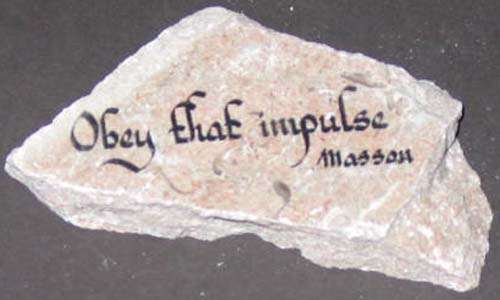 Obey that impulse
Masson